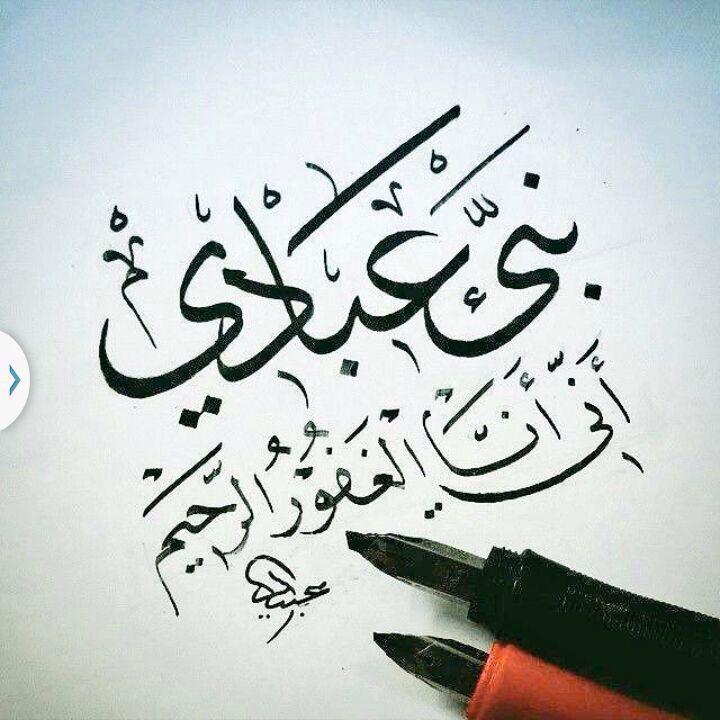 نَبِّئْ عِبَادِي
أَنِّي أَنَا الْغَفُورُ الرَّحِيمُ